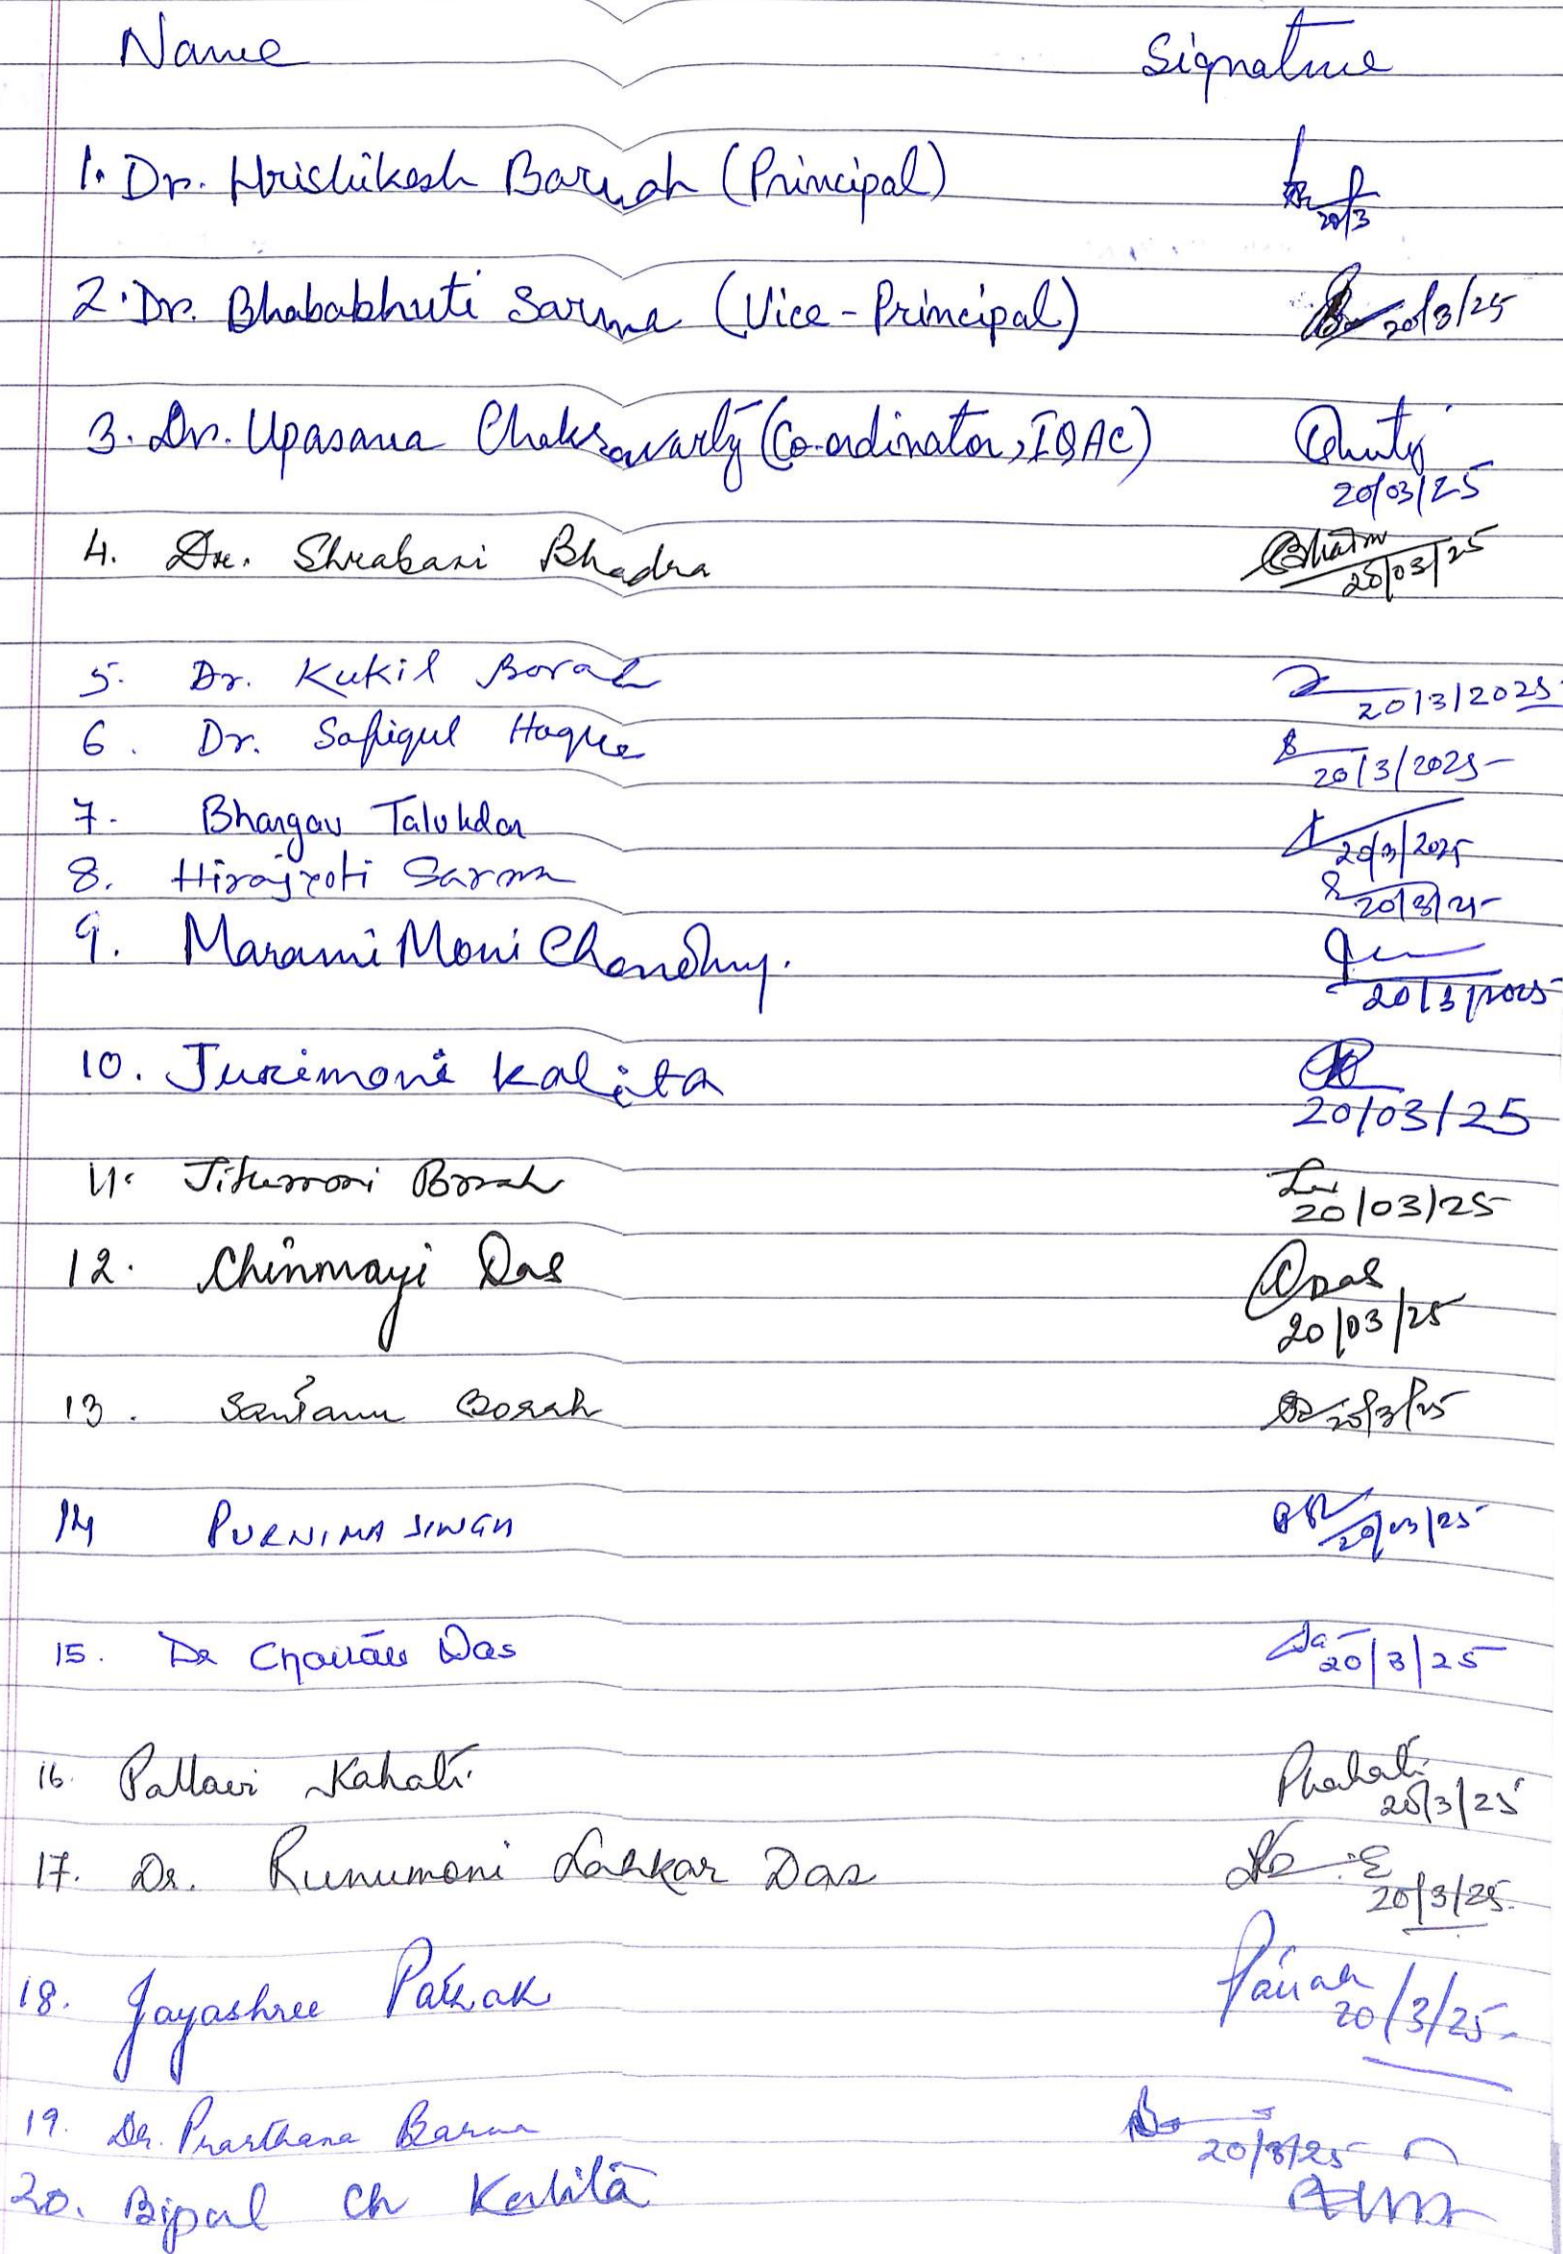 Name Signature
1. Dr. Hrishikesh Baruah (Principal) 20/3
2. Dr. Bhababhuti Sarma (Vice-Principal) 20/3/25
3. Dr. Upasana Chakravarty (Co-ordinator, IQAC)
20/03/25
4. Dr. Shrabani Bhadra
20/03/25
5. Dr. Kukil Borah 20/3/2025
6. Dr. Safiqul Haque 20/3/2025
7. Bhargav Talukdar 20/3/2025
8. Hirajyoti Sarma 20/3/25
9. Marami Moni Choudhury.
20/3/2025
10. Jurimoni Kalita
20/03/25
11. Jitumoni Borah 20/03/25
12. Chinmayi Das CDas
20/03/25
13. Santanu Borah 20/3/25
14 PURNIMA SINGH 20/03/25
15. Dr Das 20/3/25
16. Pallavi Kahali Pkahali
20/3/25
17. Dr. Runumoni Lahkar Das
20/3/25
18. Jayashree Pathak Pathak
20/3/25
19. Dr. Prarthana Barua 20/3/25
20. Bipul Ch Kalita